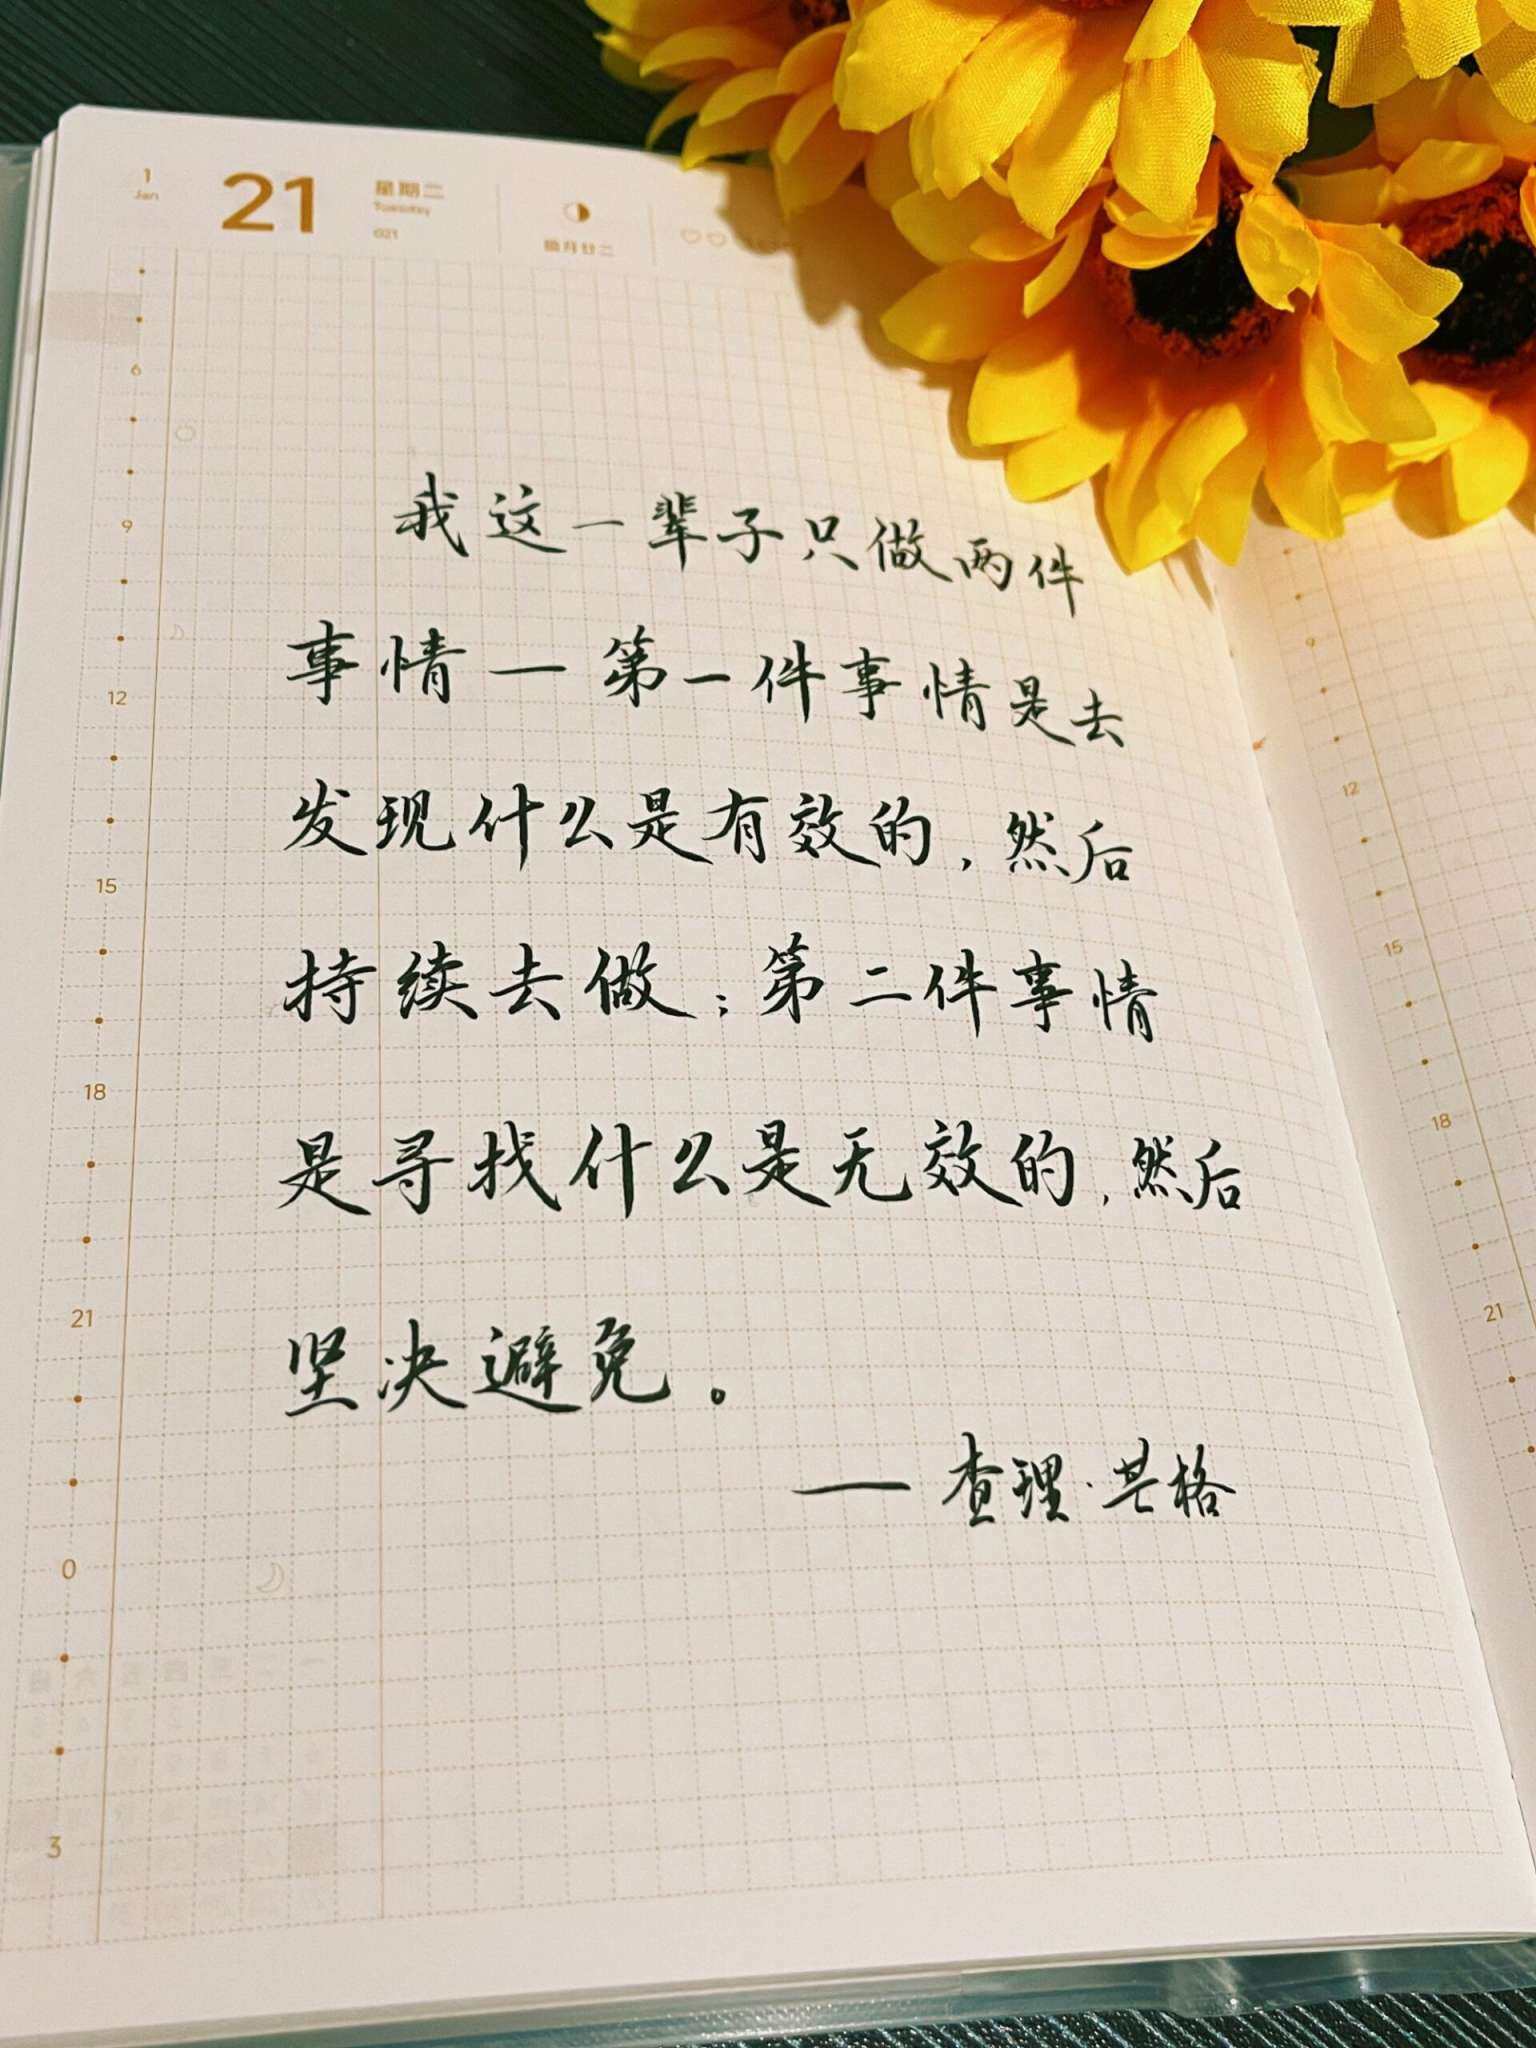 1
Jan
21
星期二
Tuesday
021
腊月廿二
我这一辈子只做两件
事情一第一件事情是去
发现什么是有效的，然后
持续去做；第二件事情
是寻找什么是无效的，然后
坚决避免。
——查理·芒格
6
9
12
15
18
21
0
3
9
12
15
18
21